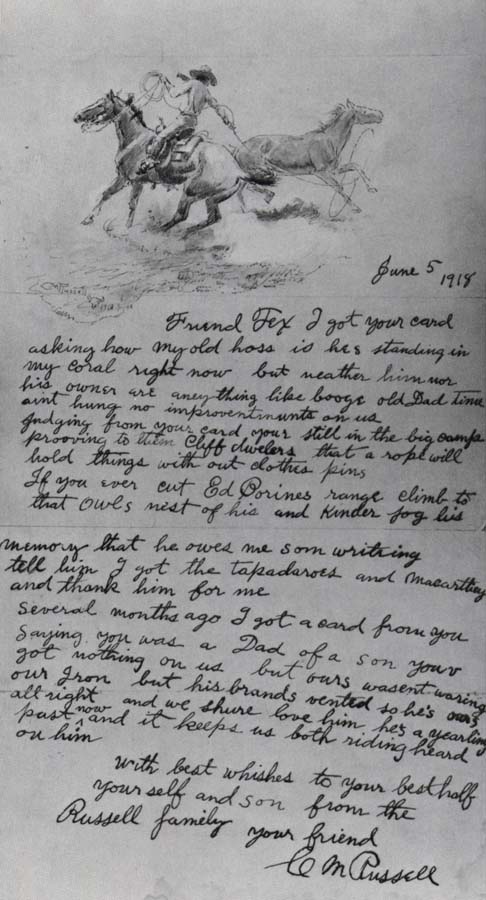 June 5 1918
Friend Tex I got your card
asking how my old hoss is hes standing in
my coral right now but neather him nor
his owner are aney thing like booze old Dad time
aint hung no improventmunts on us
Judging from your card your still in the big camp
prooving to them Cliff dwelers that a rope will
hold things with out clothes pins
If you ever cut Ed Borines range climb to
that owls nest of his and kinder jog his
memory that he owes me som writhing
tell him I got the tapadaroes and
and thank him for me
several months ago I got a card from you
saying you was a Dad of a son youv
got nothing on us but ours wasent waring
our Iron but his brands vented so he's ours
all right and we shure love him he's a yearling
past now and it keeps us both riding heard
on him
with best whishes to your best half
your self and son from the
Russell famely your friend
C M Russell